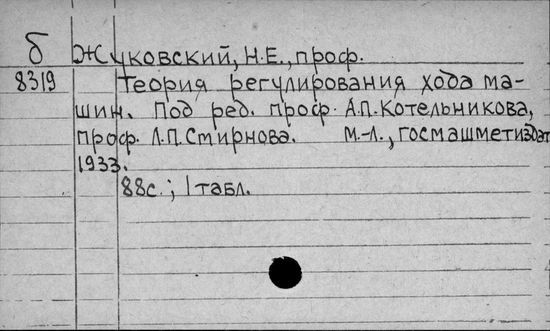 б Жуковский, Н.Е., проф.
8319 Теория регулирования хода ма-
шин. Под ред. проф. А.П.Котельникова,
проф. Л.П.Смирнова. М.-Л., госмашметиздат
1933.
88с.; 1 табл.